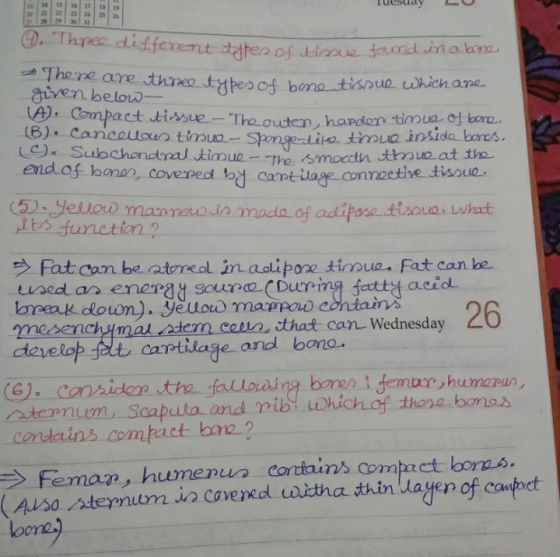 Tuesday
13 14 15 16 17 18 19
20 21 22 23 24 25 26
27 28 29 30 31
(4). Three different types of tissue found in a bone.
⇒ There are three types of bone tissue which are
given below—
(A). Compact tissue – The outer, harder tissue of bone.
(B). Cancellous tissue – Sponge-like tissue inside bones.
(C). Subchondral tissue – The smooth tissue at the
end of bones, covered by cartilage connective tissue.
(5). Yellow marrow is made of adipose tissue. What
its function?
⇒ Fat can be stored in adipose tissue. Fat can be
used as energy source (During fatty acid
break down). Yellow marrow contains
mesenchymal stem cells, that can Wednesday 26
develop fat, cartilage and bone.
(6). Consider the following bones: femar, humerus,
sternum, Scapula and rib. Which of these bones
contains compact bone?
⇒ Femar, humerus contains compact bones.
(Also sternum is covered with a thin layer of compact
bone)